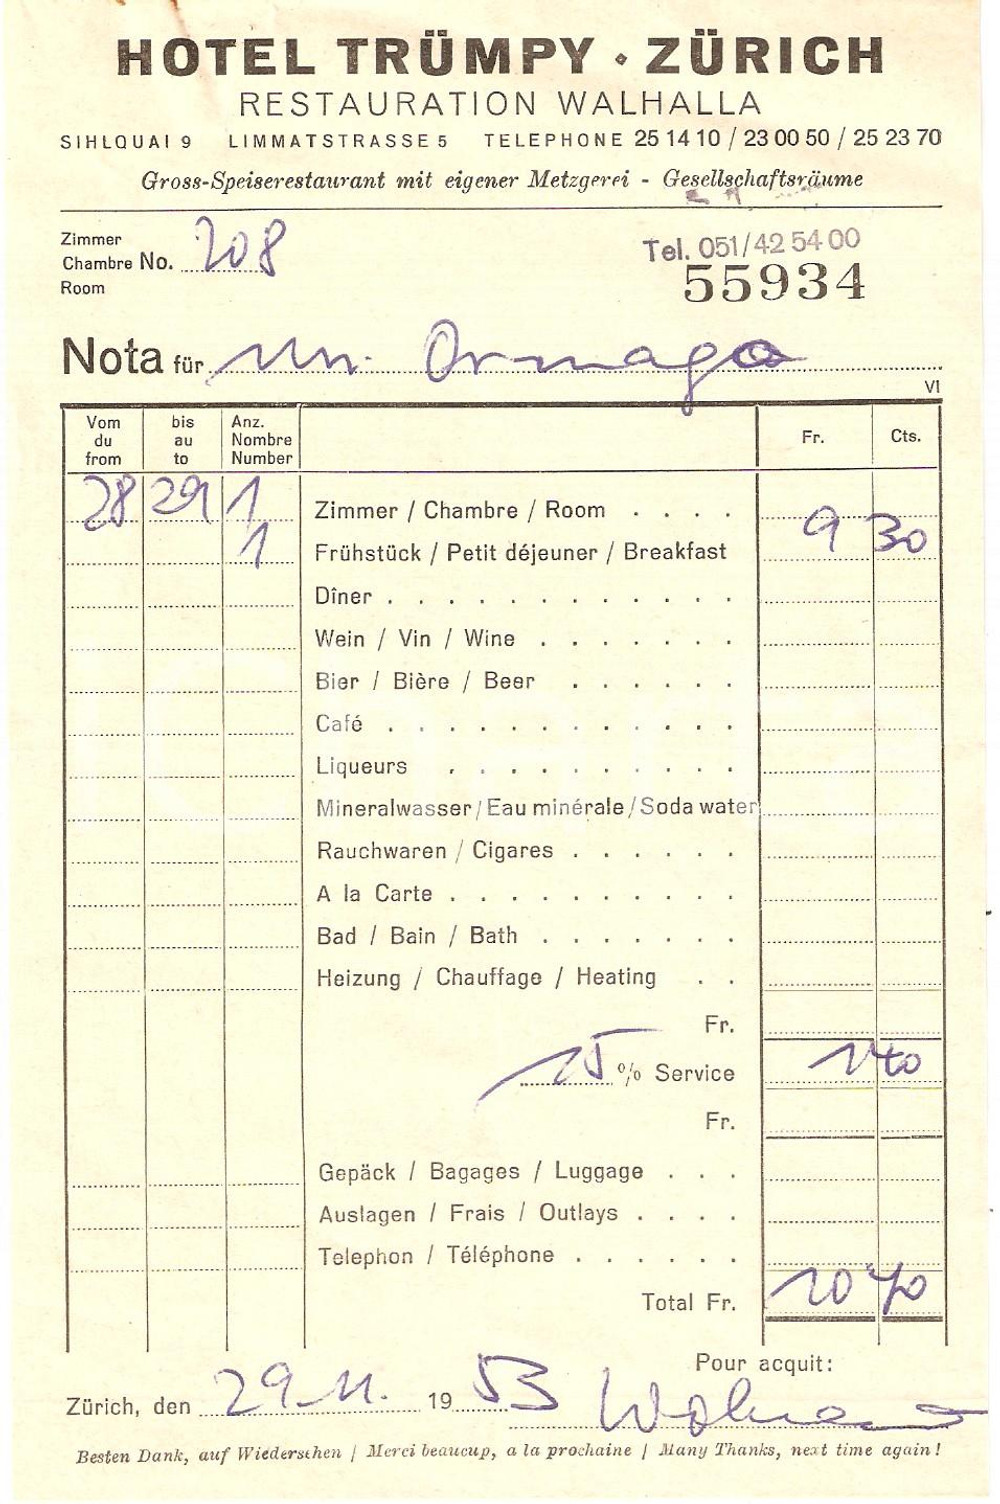 HOTEL TRÜMPY · ZÜRICH
RESTAURATION WALHALLA
SIHLQUAI 9 LIMMATSTRASSE 5 TELEPHONE 25 14 10 / 23 00 50 / 25 23 70
Gross-Speiserestaurant mit eigener Metzgerei - Gesellschaftsräume
Zimmer
Chambre No. 208
Room
Tel. 051/42 54 00
55934
Nota für Mr. Ormaga
VI
Vom du from bis au to Anz. Nombre Number Fr. Cts.
28 29 1 Zimmer / Chambre / Room . . . .
1 Frühstück / Petit déjeuner / Breakfast 9 30
Dîner . . . . . . . . . . . .
Wein / Vin / Wine . . . . . . .
Bier / Bière / Beer . . . . . .
Café . . . . . . . . . . . .
Liqueurs . . . . . . . . . .
Mineralwasser / Eau minérale / Soda water
Rauchwaren / Cigares . . . . . .
A la Carte . . . . . . . . . .
Bad / Bain / Bath . . . . . . .
Heizung / Chauffage / Heating . .
Fr.
15 % Service 1 40
Fr.
Gepäck / Bagages / Luggage . . .
Auslagen / Frais / Outlays . . . .
Telephon / Téléphone . . . . . .
Total Fr. 10 70
Pour acquit:
Zürich, den 29. 11. 19 53
Besten Dank, auf Wiedersehen / Merci beaucup, a la prochaine / Many Thanks, next time again!